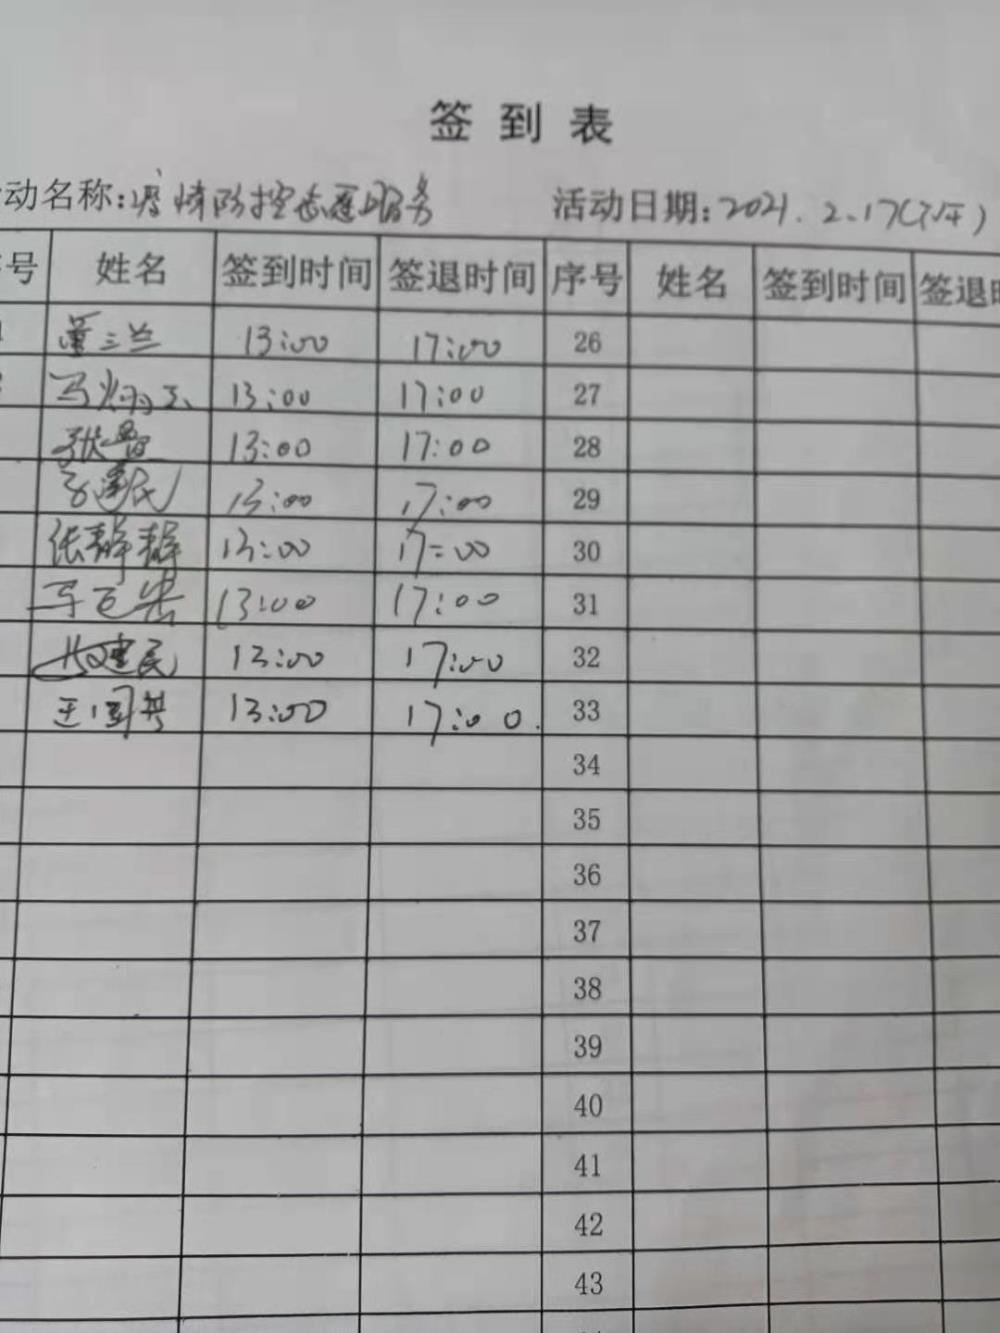 签到表
动名称:疫情防控志愿服务 活动日期:2021.2.17(下午)
号 姓名 签到时间 签退时间 序号 姓名 签到时间 签退时
董三兰 13:00 17:00 26
马炳玉 13:00 17:00 27
张 13:00 17:00 28
建民 13:00 17:00 29
张静静 13:00 17:00 30
13:00 17:00 31
建民 13:00 17:00 32
王国英 13:00 17:00. 33
34
35
36
37
38
39
40
41
42
43